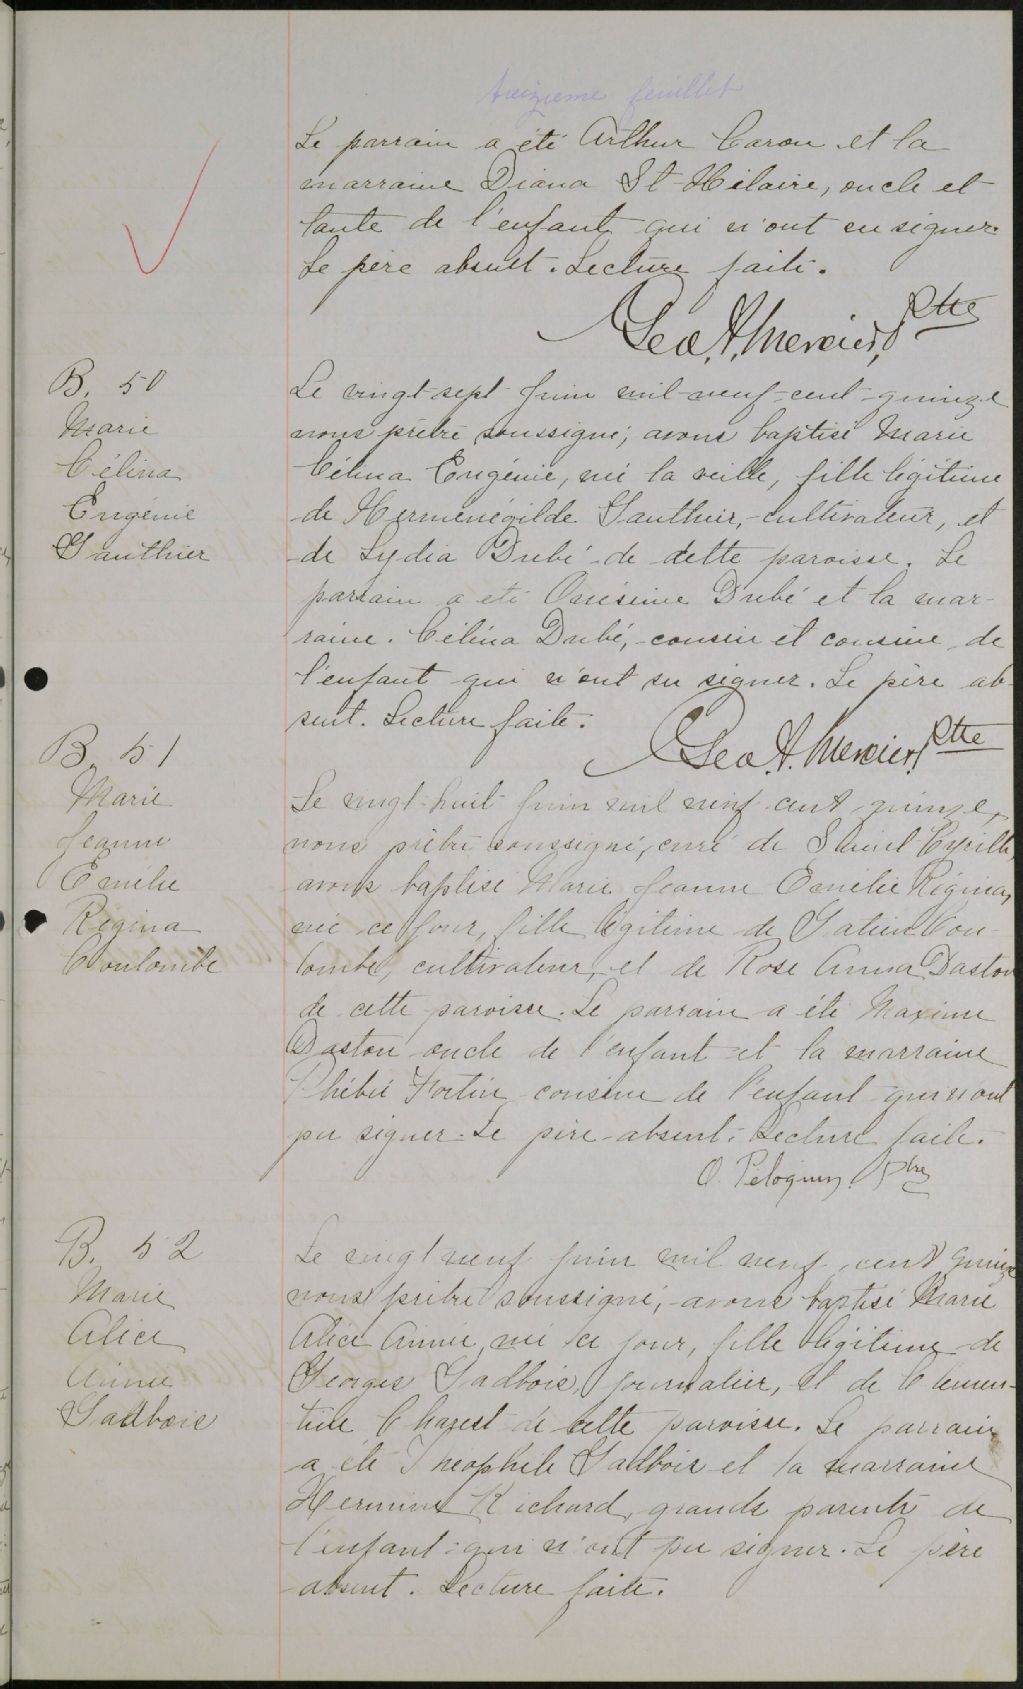 treizième feuillet
Le parrain a été Arthur Caron et la
marraine Diana St-Hilaire, oncle et
tante de l'enfant qui n'ont su signer.
Le père absent. Lecture faite.
Geo. A. Mercier, Ptre
B. 50
Marie
Célina
Eugénie
Gauthier
Le vingt-sept Juin mil-neuf-cent-quinze
nous prêtre soussigné, avons baptisé Marie
Célina Eugénie, née la veille, fille légitime
de Herménégilde Gauthier, cultivateur, et
de Lydia Dubé de cette paroisse. Le
parrain a été Onésime Dubé et la mar-
raine. Célina Dubé, cousin et cousine de
l'enfant qui n'ont su signer. Le père ab-
sent. Lecture faite.
Geo. A. Mercier, Ptre
B. 51
Marie
Jeanne
Emélie
Régina
Coulombe
Le vingt-huit Juin mil neuf cent quinze,
nous prêtre soussigné, curé de Saint Cyrille,
avons baptisé Marie Jeanne Emélie Régina,
née ce jour, fille légitime de Gatien Cou-
lombe, cultivateur, et de Rose Anna Daston
de cette paroisse. Le parrain a été Maxime
Daston oncle de l'enfant et la marraine
Phébée Fortin cousine de l'enfant qui n'ont
pu signer. Le père absent. Lecture faite.
O. Peloquin Ptre
B. 52
Marie
Alice
Aimée
Gadbois
Le vingt neuf Juin mil neuf cent quinze
nous prêtre soussigné, avons baptisé Marie
Alice Aimée, née ce jour, fille légitime de
Georges Gadbois, journalier, et de Clemen-
tine Charest de cette paroisse. Le parrain
a été Théophile Gadbois et la marraine
Hermine Richard, grands parents de
l'enfant qui n'ont pu signer. Le père
absent. Lecture faite.